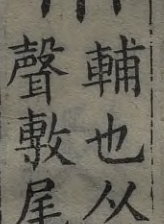 輔也从
聲敷尾